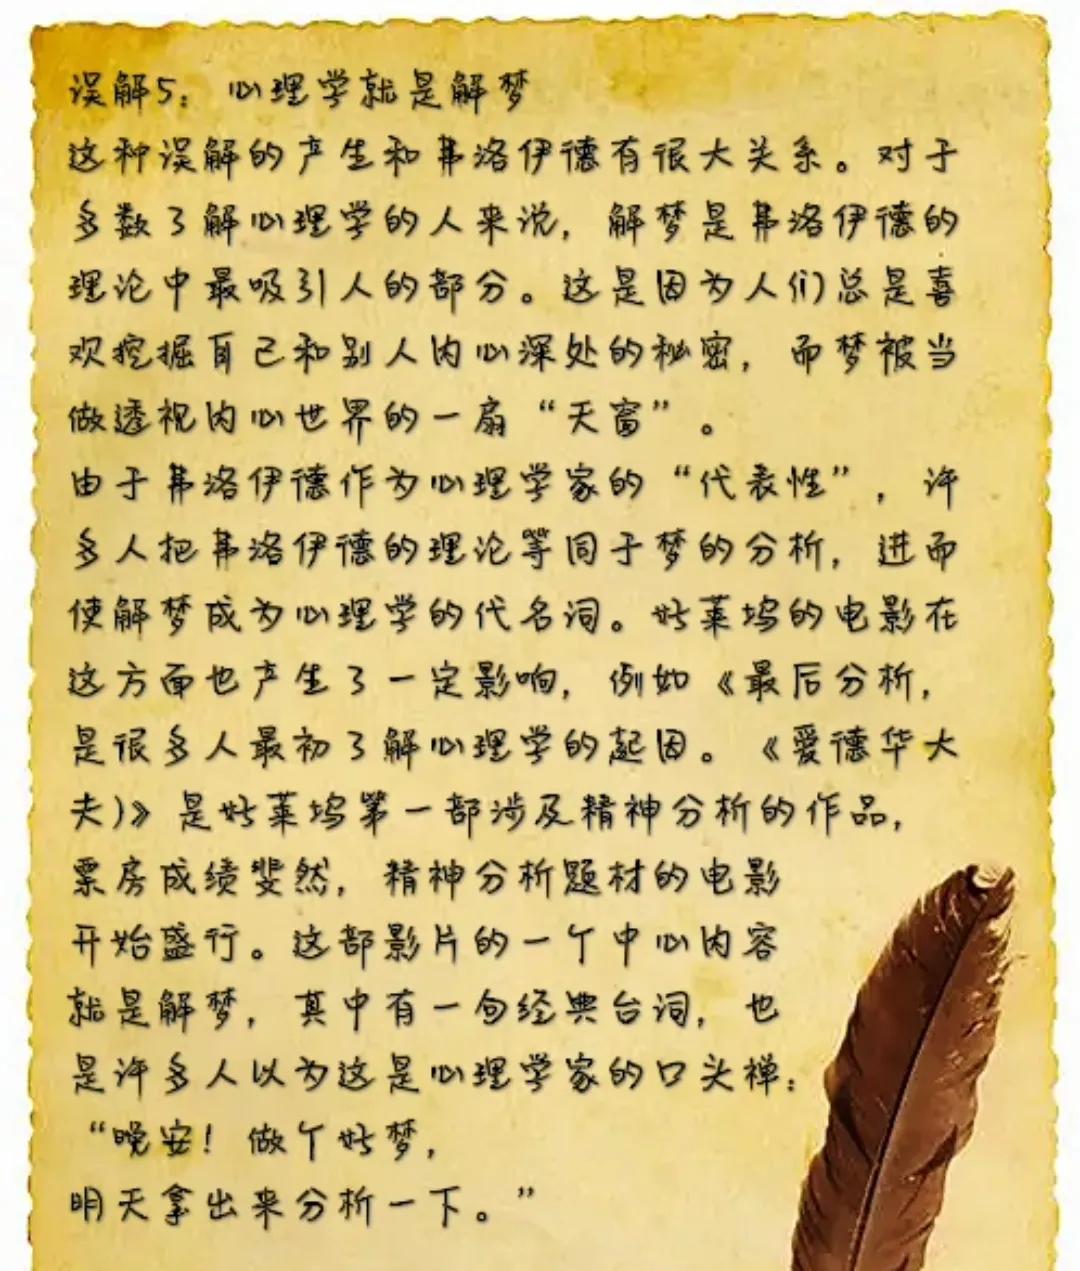 误解5：心理学就是解梦
这种误解的产生和弗洛伊德有很大关系。对于
多数了解心理学的人来说，解梦是弗洛伊德的
理论中最吸引人的部分。这是因为人们总是喜
欢挖掘自己和别人内心深处的秘密，而梦被当
做透视内心世界的一扇“天窗”。
由于弗洛伊德作为心理学家的“代表性”，许
多人把弗洛伊德的理论等同于梦的分析，进而
使解梦成为心理学的代名词。好莱坞的电影在
这方面也产生了一定影响，例如《最后分析，
是很多人最初了解心理学的起因。《爱德华大
夫)》是好莱坞第一部涉及精神分析的作品，
票房成绩斐然，精神分析题材的电影
开始盛行。这部影片的一个中心内容
就是解梦，其中有一句经典台词，也
是许多人以为这是心理学家的口头禅：
“晚安！做个好梦，
明天拿出来分析一下。”